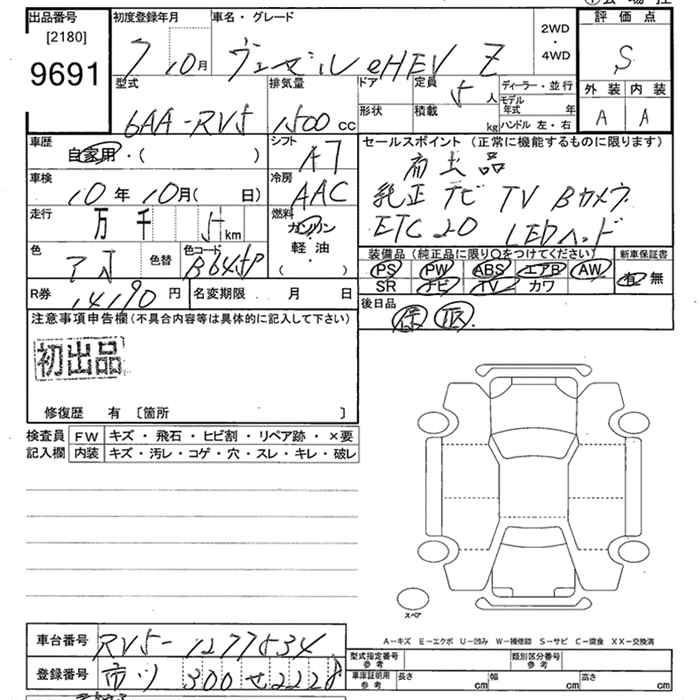 出品番号
[2180]
9691
初度登録年月
7 10月
車名・グレード
ヴェゼル eHEV Z
2WD
・
4WD
評価点
S
外装 内装
A A
型式
6AA-RV5
排気量
1500 cc
ドア
形状
定員
5 人
積載
kg
ディーラー・並行
モデル年式 年
ハンドル 左・右
車歴
自家用・( )
シフト
AT
セールスポイント(正常に機能するものに限ります)
初出品
純正 ナビ TV Bカメラ
ETC 2.0 LEDヘッド
車検
10年 10月( 日)
冷房
AAC
走行
万 千 5 km
燃料
ガソリン
軽・油
( ・ )
色
色替
色コード
B645P
装備品(純正品に限り○をつけてください)
PS PW ABS エアB AW
SR ナビ TV カワ
新車保証書
有 無
R券
14190 円
名変期限 月 日
後日品
保 取
注意事項申告欄(不具合内容等は具体的に記入して下さい)
初出品
修復歴 有 〔箇所 〕
検査員 FW キズ・飛石・ヒビ割・リペア跡・×要
記入欄 内装 キズ・汚レ・コゲ・穴・スレ・キレ・破レ
スペア
A-キズ E-エクボ U-凹み W-補修跡 S-サビ C-腐食 XX-交換済
車台番号
RV5-1277534
登録番号
300 せ 2228
型式指定番号
参考
類別区分番号
参考
車庫証明用
参考
長さ cm 幅 cm 高さ cm